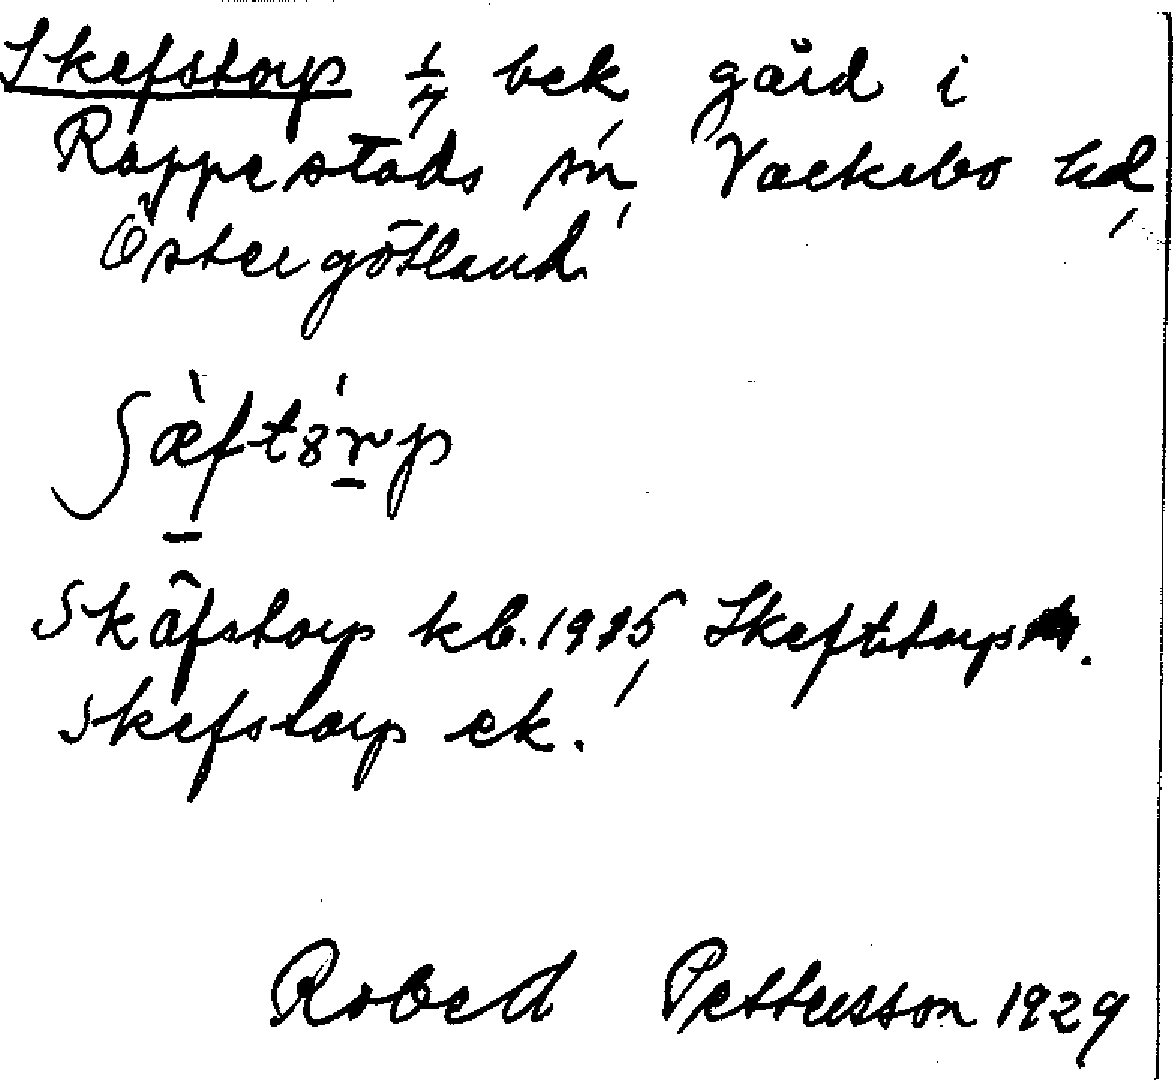 Skefstorp 1/7 bek, gård i
Rappestads sn, Vackebo hd,
Östergötland
Skäfstorp kb. 1925, Skeftstorp
Skefstorp ek.
Robert Pettersson 1929